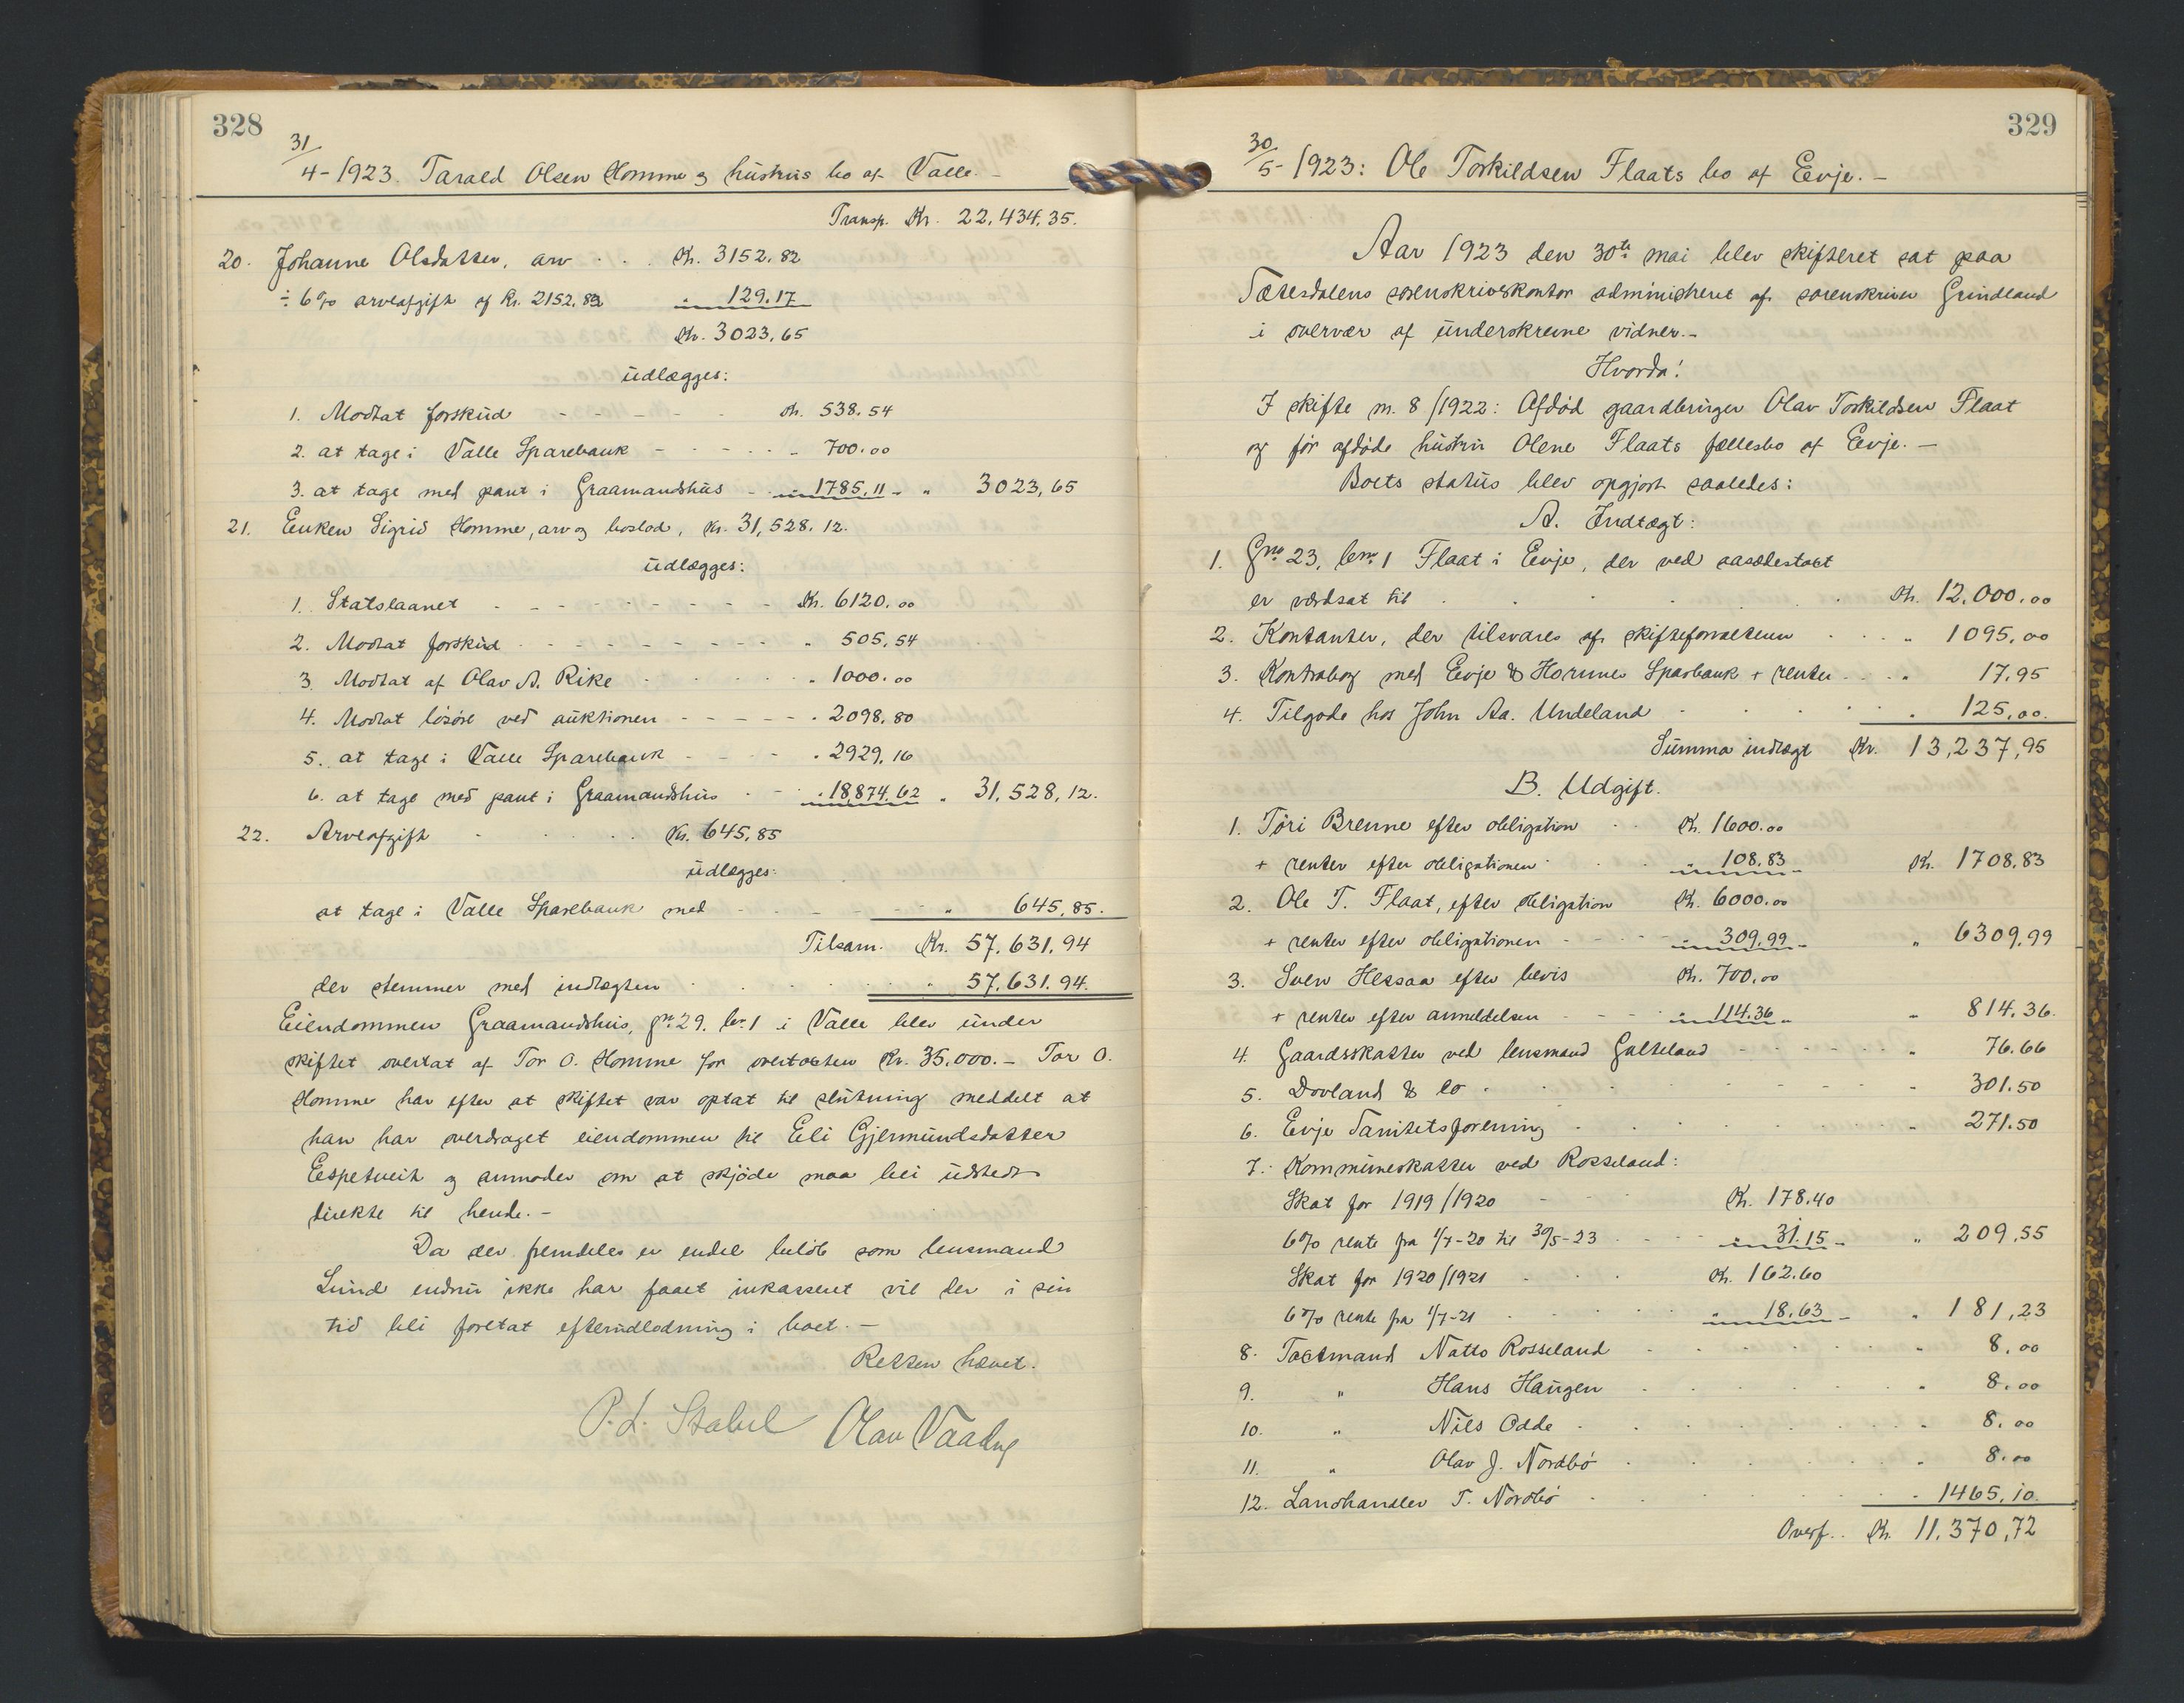 328
31/4-1923. Tarald Olsen Homme og hustrus bo af Valle.-
Transp. Kr. 22.434.35.
20. Johanne Olsdatter, arv . . . Kr. 3152.82
÷ 6% arveafgift af Kr. 2152.82 " 129.17
Kr. 3023,65
udlægges:
1. Modtat forskud - - - - Kr. 538.54
2. at tage i Valle Sparebank - - - - - 700.00
3. at tage med pant i Graamandshus - " 1785.11 - " 3023,65
21. Enken Sigrid Homme, arv og boslod, Kr. 31,528.12.
udlægges:
1. Statslaanet - - - - - - - - Kr. 6120.00
2. Modtat forskud - - - - - - - - " 505,54
3. Modtat af Olav A. Rike - - - - - " 1000.00
4. Modtat løsøre ved auktionen - - - - - " 2098,80
5. at tage i Valle Sparebank - - - - " 2929,16
6. at tage med pant i Graamandshus - - " 18,874.62 " 31,528,12.
22. Arveafgift . . . . Kr. 645,85
udlægges:
at tage i Valle Sparebank med - - - - - " 645,85.
Tilsam. Kr. 57.631.94
der stemmer med indtægten . . . . . . " 57.631.94.
Eiendommen Graamandshus, gnr 29. bnr 1 i Valle blev under
skiftet overtat af Tor O. Homme for overtaksten Kr. 35.000.- Tor O.
Homme har efter at skiftet var optat til slutning meddelt at
han har overdraget eiendommen til Eli Gjermundsdatter
Espetveit og anmoder om at skjøde maa bli udstedt
direkte til hende.-
Da der fremdeles er endel beløb som lensmand
Lund endnu ikke har faaet inkasseret vil der i sin
tid bli foretat efterudlodning i boet.-
Retten hævet.
P. L. Stabel Olav Vaadne
329
30/5-1923: Ole Torkildsen Flaats bo af Evje.-
Aar 1923 den 30te mai blev skifteret sat paa
Sætesdalens sorenskriverkontor administreret af sorenskriver Grindland
i overvær af underskrevne vidner.-
Hvorda!
I skifte nr. 8/1922: Afdød gaardbruger Olav Torkildsen Flaat
og før afdøde hustru Olene Flaats fællesbo af Evje.-
Boets status blev opgjort saaledes:
A. Indtægt:
1. Gnr 23, bnr 1 Flaat i Evje, der ved aasædestakst
er værdsat til . . . . . . Kr. 12,000.00
2. Kontanter, der tilsvares af skifteforvalteren . . . . " 1095,00
3. Kontrabog med Evje & Hornnes Sparbank + renter . . . . " 17,95
4. Tilgode hos John Aa. Undeland . . . . . " 125,00.
Summa indtægt Kr. 13,237,95
B. Udgift.
1. Tori Brenne efter obligation . . Kr. 1600.00
+ renter efter obligationen . . . " 108.83 - Kr. 1708,83
2. Ole T. Flaat, efter obligation Kr. 6000.00
+ renter efter obligationen - - - - " 309,99 - " 6309,99
3. Sven Hessaa efter bevis Kr. 700.00
+ renter efter anmeldelsen - - - - " 114.36 - " 814,36.
4. Gaardsskatter ved lensmand Galteland - - - - - - " 76.66
5. Dovland & Co . . . . . . . . " 301.50
6. Evje Sanitetsforening . . . . . . . . " 271.50
7. Kommuneskatter ved Rosseland:
Skat for 1919/1920 - - - Kr. 178.40
6% rente fra 1/7-20 til 30/5-23 - - - " 31.15 - " 209,55
Skat for 1920/1921 . . . Kr. 162.60
6% rente fra 1/7-21 . . . . . " 18.63 - " 181,23
8. Takstmand Natto Rosseland . . . . . . " 8.00
9. " Hans Haugen . . . . . . " 8.00
10. " Nils Odde . . . . . . . " 8.00
11. " Olav J. Nordbø . . . . . . " 8.00
12. Landhandler T. Nordbø . . . . . . . " 1465,10.
Overf. Kr. 11.370,72